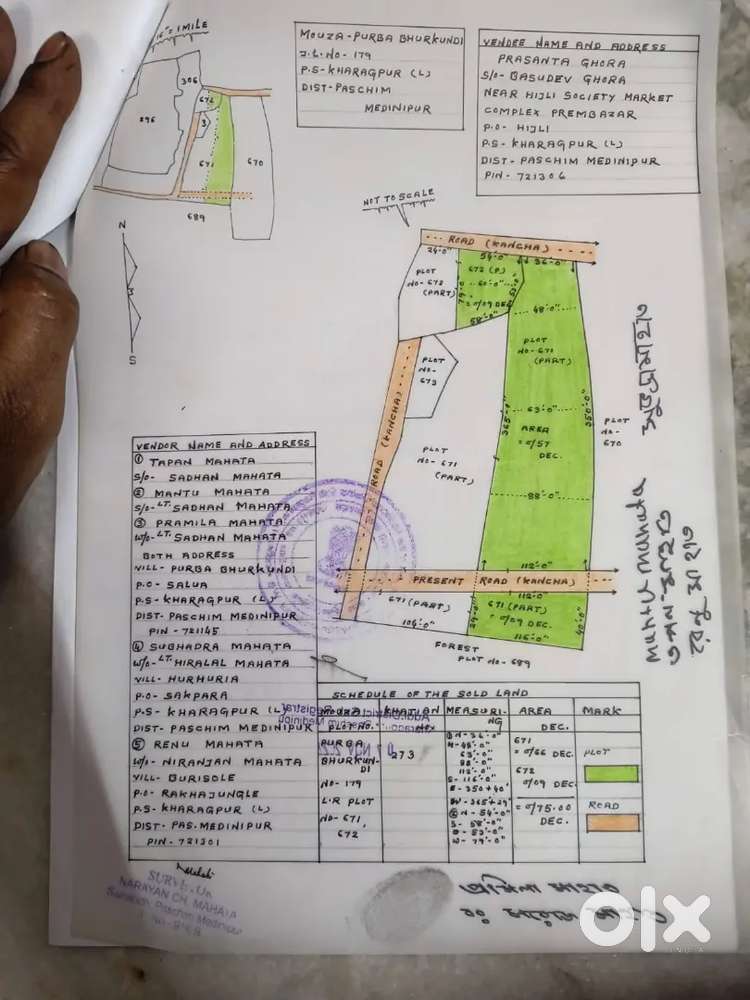 16"= 1 MILE
306
672
296
3
671
670
689
MOUZA-PURBA BHURKUNDI
J.L.NO- 179
P.S-KHARAGPUR (L)
DIST-PASCHIM
MEDINIPUR
VENDEE NAME AND ADDRESS
PRASANTA GHORA
S/O- BASUDEV GHORA
NEAR HIJLI SOCIETY MARKET
COMPLEX PREMBAZAR
P.O- HIJLI
P.S- KHARAGPUR (L)
DIST- PASCHIM MEDINIPUR
PIN- 721306
NOT TO SCALE
N
S
ROAD (KANCHA)
24'-0"
54'-0"
36'-0"
PLOT
NO-672
(PART)
672 (P.)
79'-0"
60'-0"
53'-0"
=0/09 DEC.
58'-0"
48'-0"
PLOT
NO-671
(PART)
PLOT
NO-
673
ROAD (KANCHA)
365'-0"
63'-0"
350'-0"
AREA
=0/57
DEC.
PLOT
NO-
670
PLOT
NO-671
(PART)
88'-0"
112'-0"
PRESENT ROAD (KANCHA)
112'-0
671 (PART)
29'-0"
671 (PART)
=0/09 DEC.
40'-0"
104'-0"
116'-0"
FOREST
PLOT NO-689
Mantu Mahata
VENDOR NAME AND ADDRESS
① TAPAN MAHATA
S/O- SADHAN MAHATA
② MANTU MAHATA
S/O-LT. SADHAN MAHATA
③ PRAMILA MAHATA
W/O-LT. SADHAN MAHATA
BOTH ADDRESS
VILL- PURBA BHURKUNDI
P.O- SALUA
P.S- KHARAGPUR (L)
DIST- PASCHIM MEDINIPUR
PIN- 721145
④ SUBHADRA MAHATA
W/O-LT. HIRALAL MAHATA
VILL- HURHURIA
P.O- SAKPARA
P.S- KHARAGPUR (L)
DIST- PASCHIM MEDINIPUR
⑤ RENU MAHATA
W/O- NIRANJAN MAHATA
VILL- BURISOLE
P.O- RAKHAJUNGLE
P.S- KHARAGPUR (L)
DIST- PAS.MEDINIPUR
PIN- 721301
SCHEDULE OF THE SOLD LAND
MOUZA PLOT NO. KHATIAN MEASURING AREA DEC. MARK
PURBA
BHURKUNDI
NO-179
L.R PLOT
NO-671,
672
273
N-36'-0"
M-48'-0"
63'-0"
88'-0"
112'-0"
S-116'-0"
E-350+40'
W-365+29'
N-54'-0"
S-58'-0"
E-53'-0"
W-79'-0"
671
=0/66 DEC.
672
0/09 DEC.
=0/75.00
DEC.
PLOT
ROAD
NARAYAN CH. MAHATA
olx